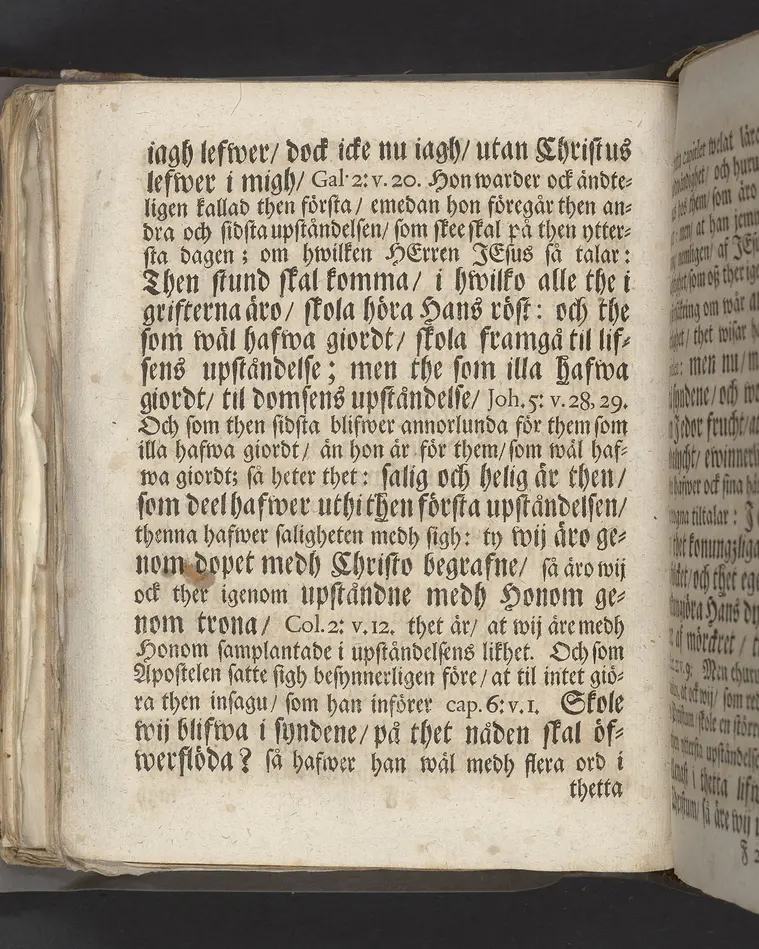 iagh lefwer/ dock icke nu iagh/ utan Christus
lefwer i migh/ Gal. 2: v. 20. Hon warder ock ändte-
ligen kallad then första/ emedan hon föregår then an-
dra och sidsta upståndelsen/ som skee skal på then ytter-
sta dagen; om hwilken HErren JEsus så talar:
Then stund skal komma/ i hwilko alle the i
grifterna äro/ skola höra Hans röst: och the
som wäl hafwa giordt/ skola framgå til lif-
sens upståndelse; men the som illa hafwa
giordt/ til domsens upståndelse/ Joh. 5: v. 28, 29.
Och som then sidsta blifwer annorlunda för them som
illa hafwa giordt/ än hon är för them/ som wäl haf-
wa giordt; så heter thet: salig och helig är then/
som deel hafwer uthi then första upståndelsen/
thenna hafwer saligheten medh sigh: ty wij äro ge-
nom dopet medh Christo begrafne/ så äro wij
ock ther igenom upståndne medh Honom ge-
nom trona/ Col. 2: v. 12. thet är/ at wij äre medh
Honom samplantade i upståndelsens likhet. Och som
Apostelen satte sigh besynnerligen före/ at til intet giö-
ra then insagu/ som han införer cap. 6: v. 1. Skole
wij blifwa i syndene/ på thet nåden skal öf-
werflöda? så hafwer han wäl medh flera ord i
thetta